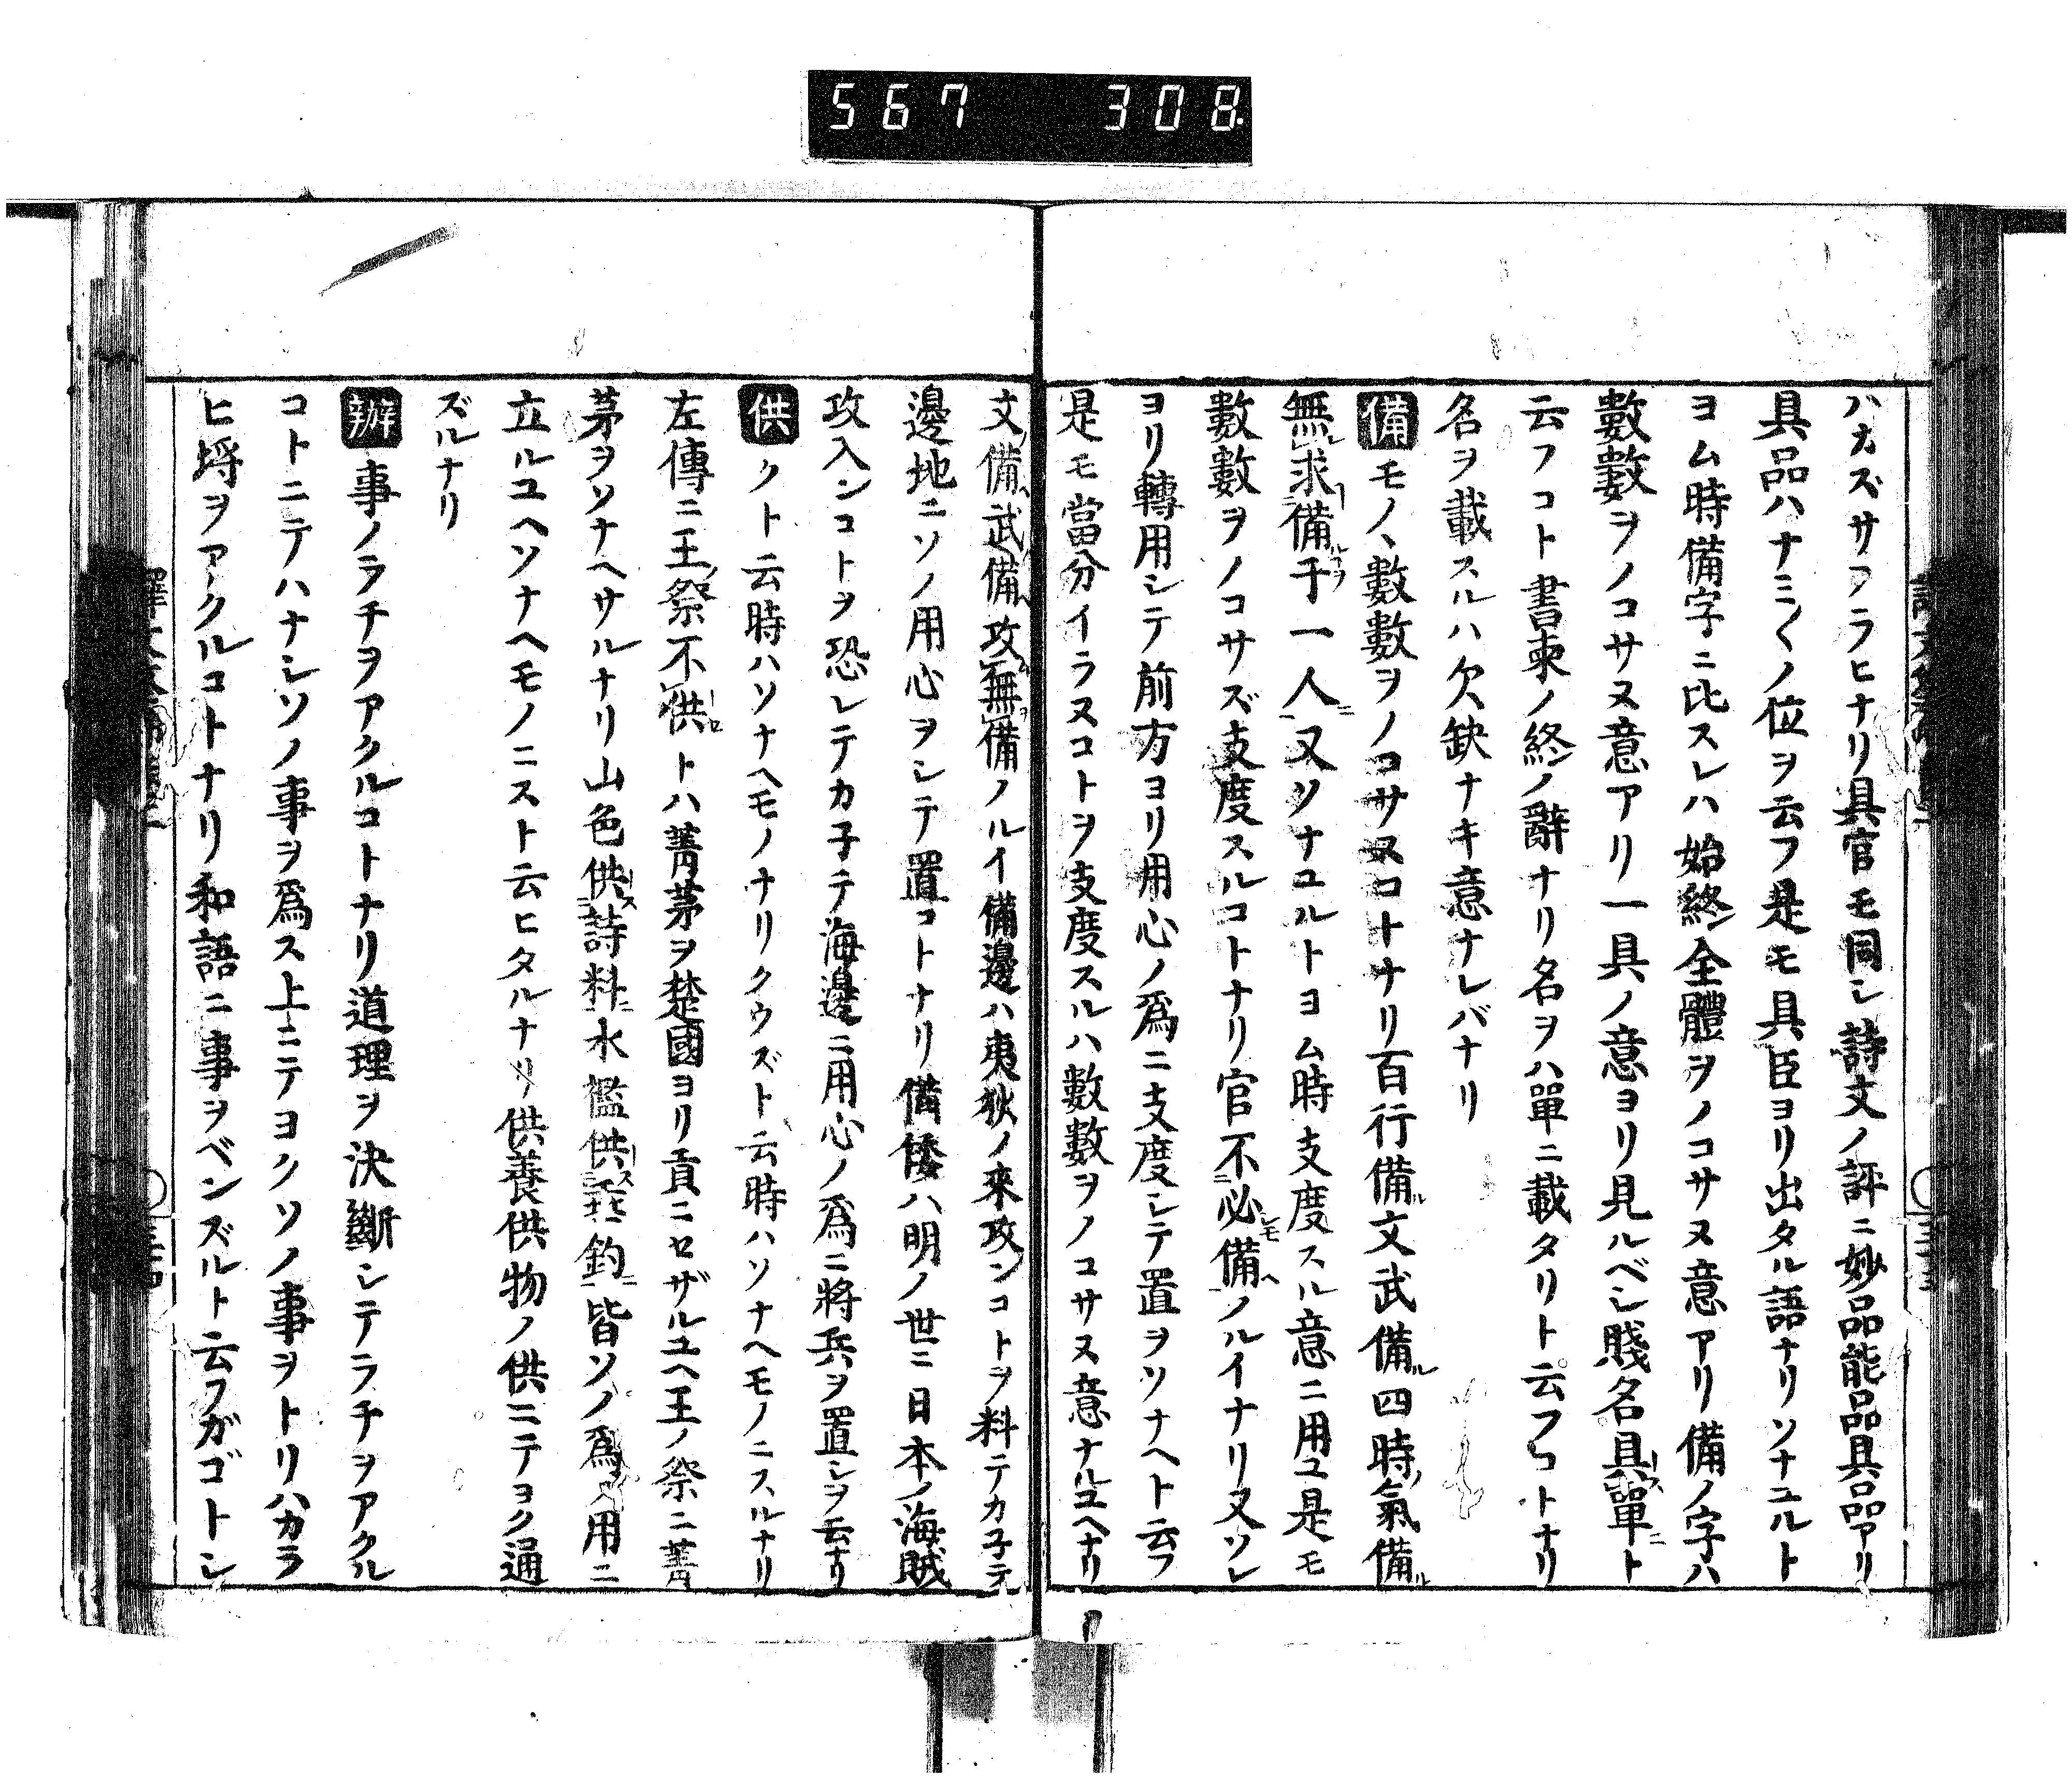 567 308
ハカズサフラヒナリ具官モ同シ詩文ノ評ニ妙品能品具品アリ
具品ハナミ〱ノ位ヲ云フ是モ具臣ヨリ出タル語ナリソナユルト
ヨム時備字ニ比スレハ始終全體ヲノコサヌ意アリ備ノ字ハ
數數ヲノコサヌ意アリ一具ノ意ヨリ見ルベシ賤名具單ト
云フコト書柬ノ終ノ辭ナリ名ヲハ單ニ載タリト云フコトナリ
名ヲ載スルハ欠缺ナキ意ナレバナリ
備モノヽ數數ヲノコサヌコトナリ百行備ル文武備ル四時ノ氣備ル
無求備于一人又ソナユルトヨム時支度スル意ニ用ユ是モ
數數ヲノコサズ支度スルコトナリ官不必備ノルイナリ又ソレ
ヨリ轉用シテ前方ヨリ用心ノ爲ニ支度シテ置ヲソナヘト云フ
是モ當分イラヌコトヲ支度スルハ數數ヲノコサヌ意ナルユヘナリ
文備武備攻無備ノルイ備邊ハ夷狄ノ來攻ンコトヲ料テカ子テ
邊地ニソノ用心ヲシテ置コトナリ備倭ハ明ノ世ニ日本ノ海賊
攻入ンコトヲ恐レテカ子テ海邊ニ用心ノ爲ニ將兵ヲ置シヲ云ナリ
供クト云時ハソナヘモノナリクウズト云時ハソナヘモノニスルナリ
左傳ニ王祭不供トハ菁茅ヲ楚國ヨリ貢ニセザルユヘ王ノ祭ニ菁
茅ヲソナヘサルナリ山色供詩料水檻供垂釣皆ソノ爲ノ用ニ
立ルユヘソナヘモノニスト云ヒタルナリ供養供物ノ供ニテヨク通
ズルナリ
辦事ノラチヲアクルコトナリ道理ヲ決斷シテラチヲアクル
コトニテハナシソノ事ヲ爲ス上ニテヨクソノ事ヲトリハカラ
ヒ埒ヲアクルコトナリ和語ニ事ヲベンズルト云フガゴトシ